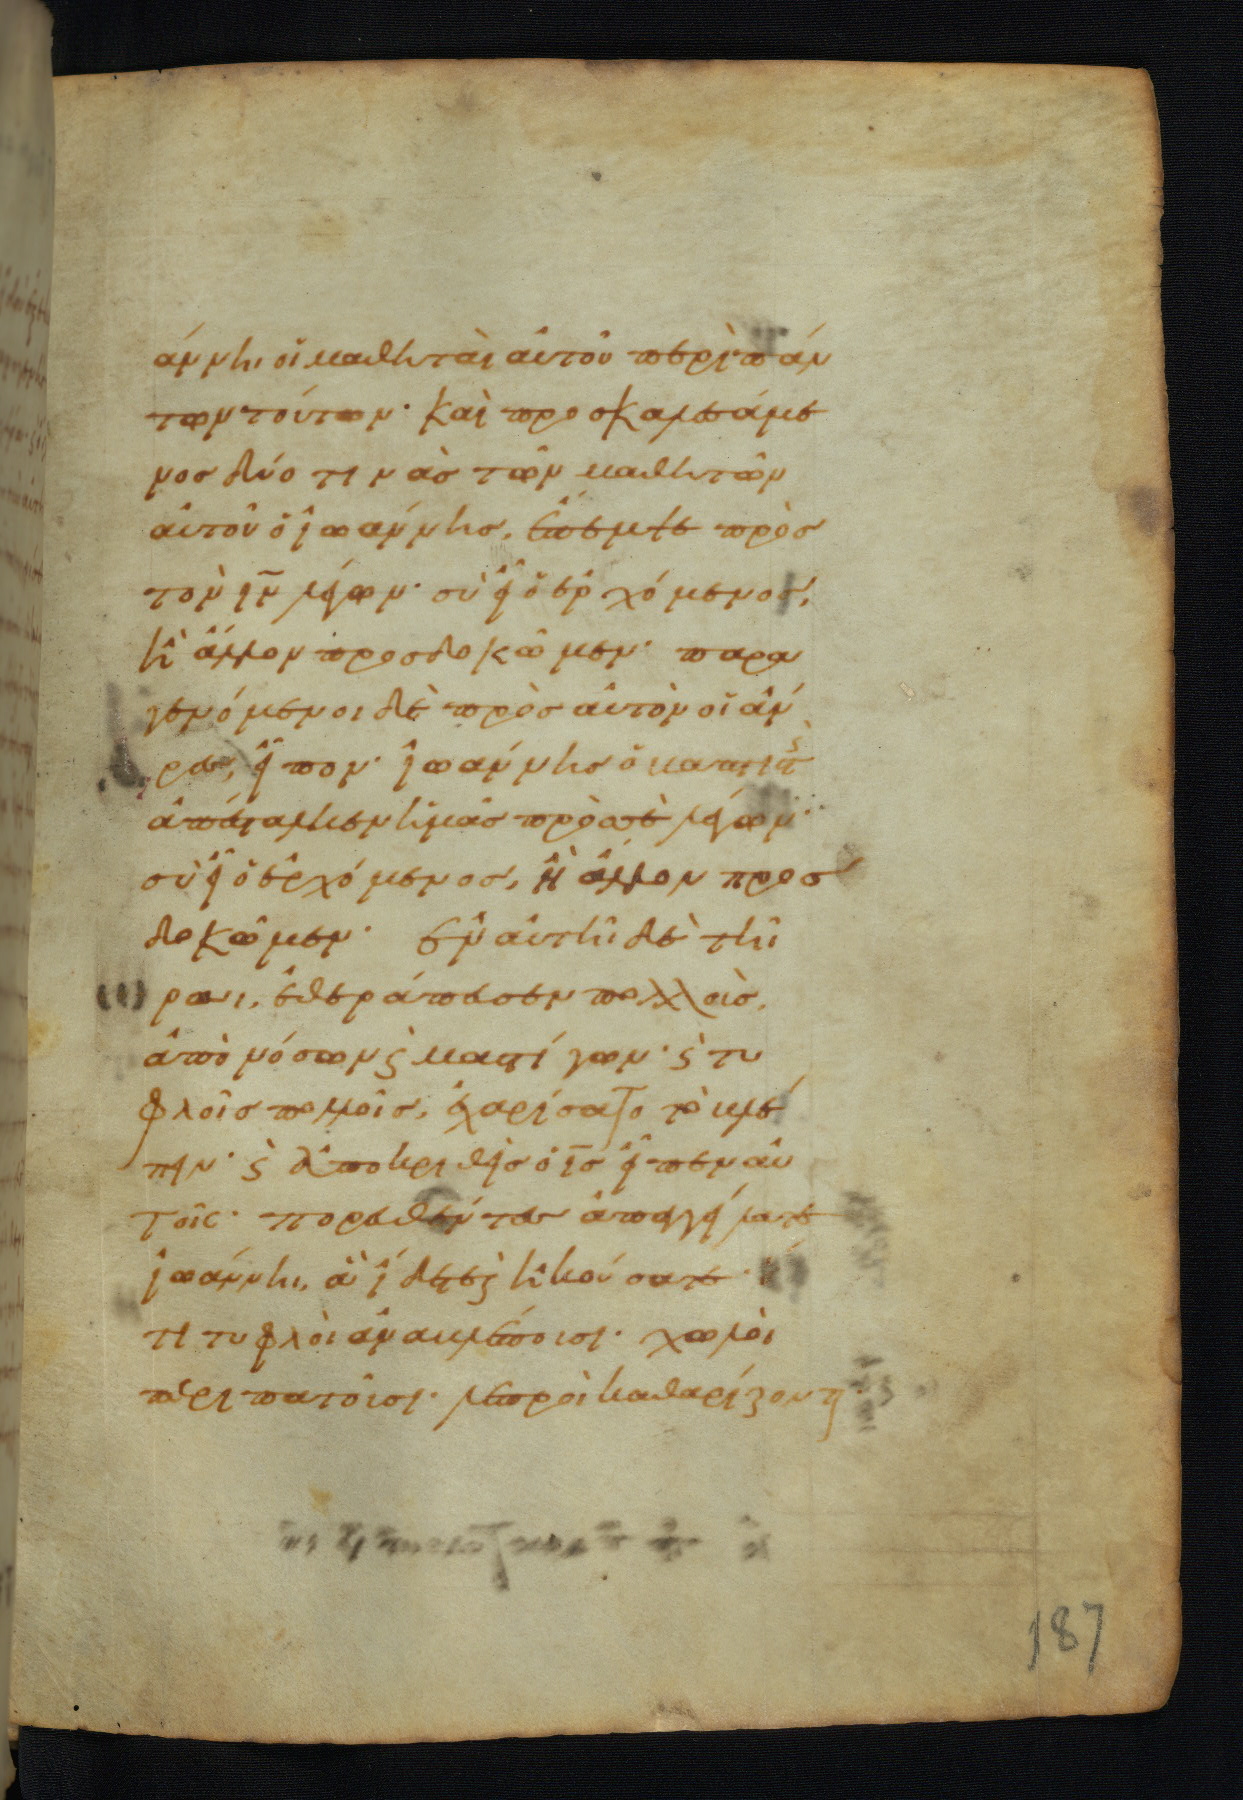 άννηι οἱ μαθηταὶ αὐτοῦ περὶ πάν
των τούτων· καὶ προσκαλεσάμε
νος δύο τινὰς τῶν μαθητῶν
αὐτοῦ ὁ ἰωάννης, ἔπεμψε πρὸς
τὸν ιν̅ λέγων· σὺ εἶ ὁ ἐρχόμενος,
ἢ ἄλλον προσδοκῶμεν· παρα
γενόμενοι δὲ πρὸς αὐτὸν οἱ ἄν
ρες, εἶπον· ἰωάννης ὁ βαπτιστ
ἀπέσταλκεν ἡμᾶς πρὸς σὲ λέγων·
σὺ εἶ ὁ ἐρχόμενος, ἢ ἄλλον προσ
δοκῶμεν· ἐν αὐτῆι δὲ τῆι
ὥραι, ἐθεράπευσεν πολλοὺς,
ἀπὸ νόσων ϗ μαστίγων· ϗ τυ
φλοῖς πολλοῖς, ἐχαρίσατο τὸ βλέ
πειν· ϗ ἀποκριθεὶς ὁ ις̅ εἶπεν αὐ
τοῖς· πορευθέντες ἀπαγγείλατε
ἰωάννηι, ἃ εἴδετε ϗ ἠκούσατε·
ὅτι τυφλοὶ ἀναβλέπουσι· χωλοὶ
περιπατοῦσι· λεπροὶ καθαρίζονται
187